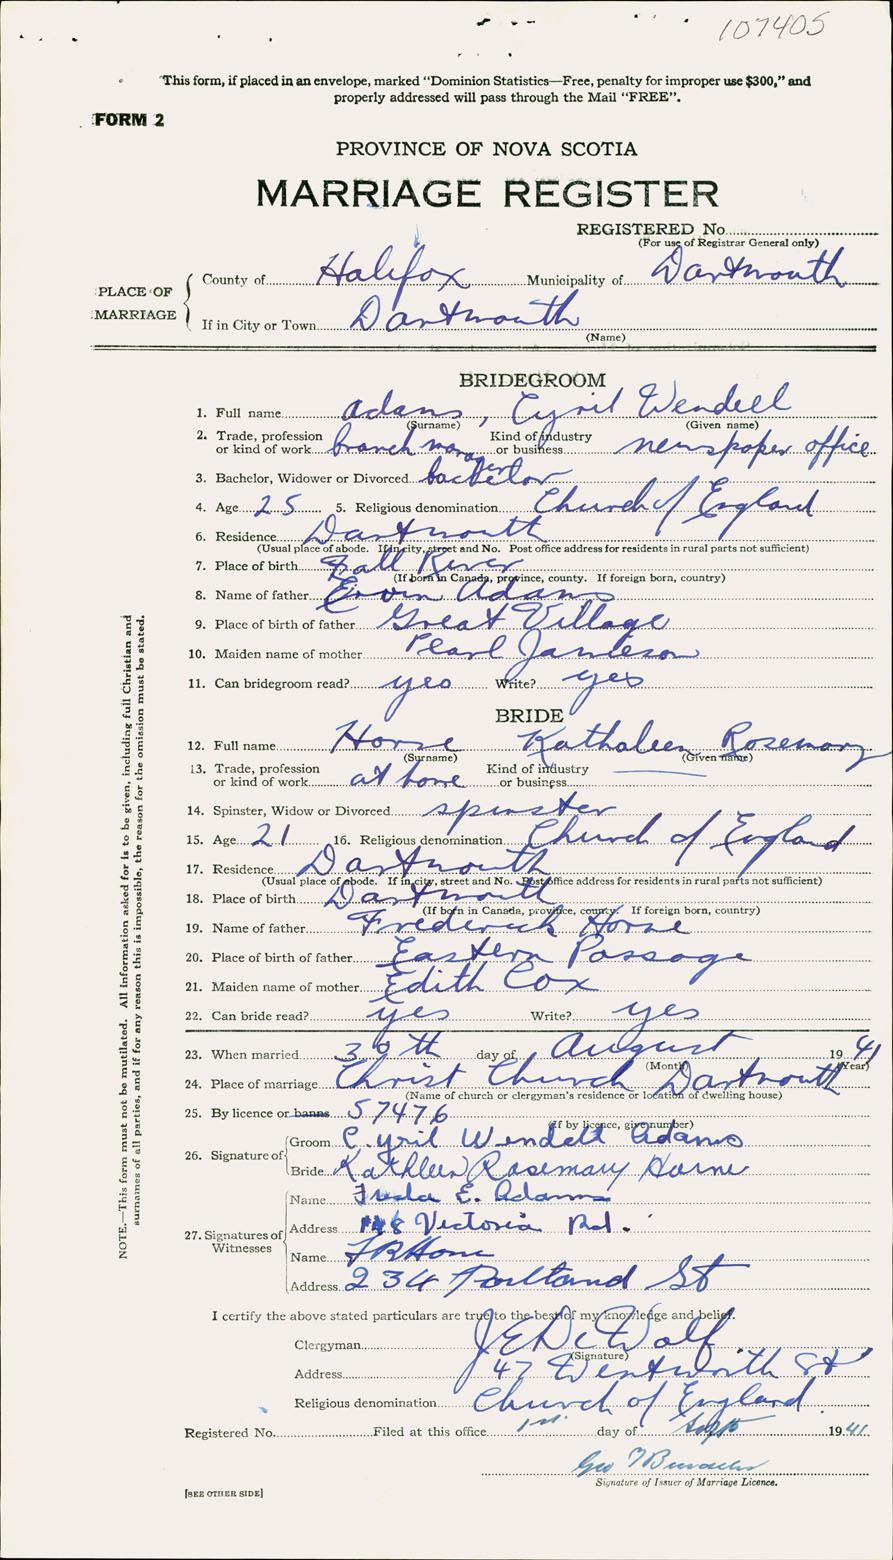 107405
"This form, if placed in an envelope, marked "Dominion Statistics—Free, penalty for improper use $300," and
properly addressed will pass through the Mail "FREE".
FORM 2
PROVINCE OF NOVA SCOTIA
MARRIAGE REGISTER
REGISTERED No.
(For use of Registrar General only)
PLACE OF MARRIAGE
County of Halifax Municipality of Dartmouth
If in City or Town Dartmouth
(Name)
BRIDEGROOM
1. Full name Adams, Cyril Wendell
(Surname) (Given name)
2. Trade, profession or kind of work branch manager Kind of industry or business newspaper office
3. Bachelor, Widower or Divorced bachelor
4. Age 25 5. Religious denomination Church of England
6. Residence Dartmouth
(Usual place of abode. If in city, street and No. Post office address for residents in rural parts not sufficient)
7. Place of birth Fall River
(If born in Canada, province, county. If foreign born, country)
8. Name of father Ervin Adams
9. Place of birth of father Great Village
10. Maiden name of mother Pearl Jamieson
11. Can bridegroom read? yes Write? yes
BRIDE
12. Full name Horne Kathaleen Rosemary
(Surname) (Given name)
13. Trade, profession or kind of work at home Kind of industry or business
14. Spinster, Widow or Divorced spinster
15. Age 21 16. Religious denomination Church of England
17. Residence Dartmouth
(Usual place of abode. If in city, street and No. Post office address for residents in rural parts not sufficient)
18. Place of birth Dartmouth
(If born in Canada, province, county. If foreign born, country)
19. Name of father Frederick Horne
20. Place of birth of father Eastern Passage
21. Maiden name of mother Edith Cox
22. Can bride read? yes Write? yes
23. When married 30th day of August 1941
(Month) (Year)
24. Place of marriage Christ Church Dartmouth
(Name of church or clergyman's residence or location of dwelling house)
25. By licence or banns 57476
(If by licence, give number)
26. Signature of
Groom Cyril Wendell Adams
Bride Kathleen Rosemary Horne
27. Signatures of Witnesses
Name Freda E. Adams
Address 148 Victoria Rd.
Name F R Horne
Address 234 Portland St
I certify the above stated particulars are true to the best of my knowledge and belief.
Clergyman J E DeWolf
(Signature)
Address 47 Wentworth St
Religious denomination Church of England
Registered No. Filed at this office 1st day of Sept 1941
Geo
Signature of Issuer of Marriage Licence.
[SEE OTHER SIDE]
NOTE.—This form must not be mutilated. All information asked for is to be given, including full Christian and
surnames of all parties, and if for any reason this is impossible, the reason for the omission must be stated.